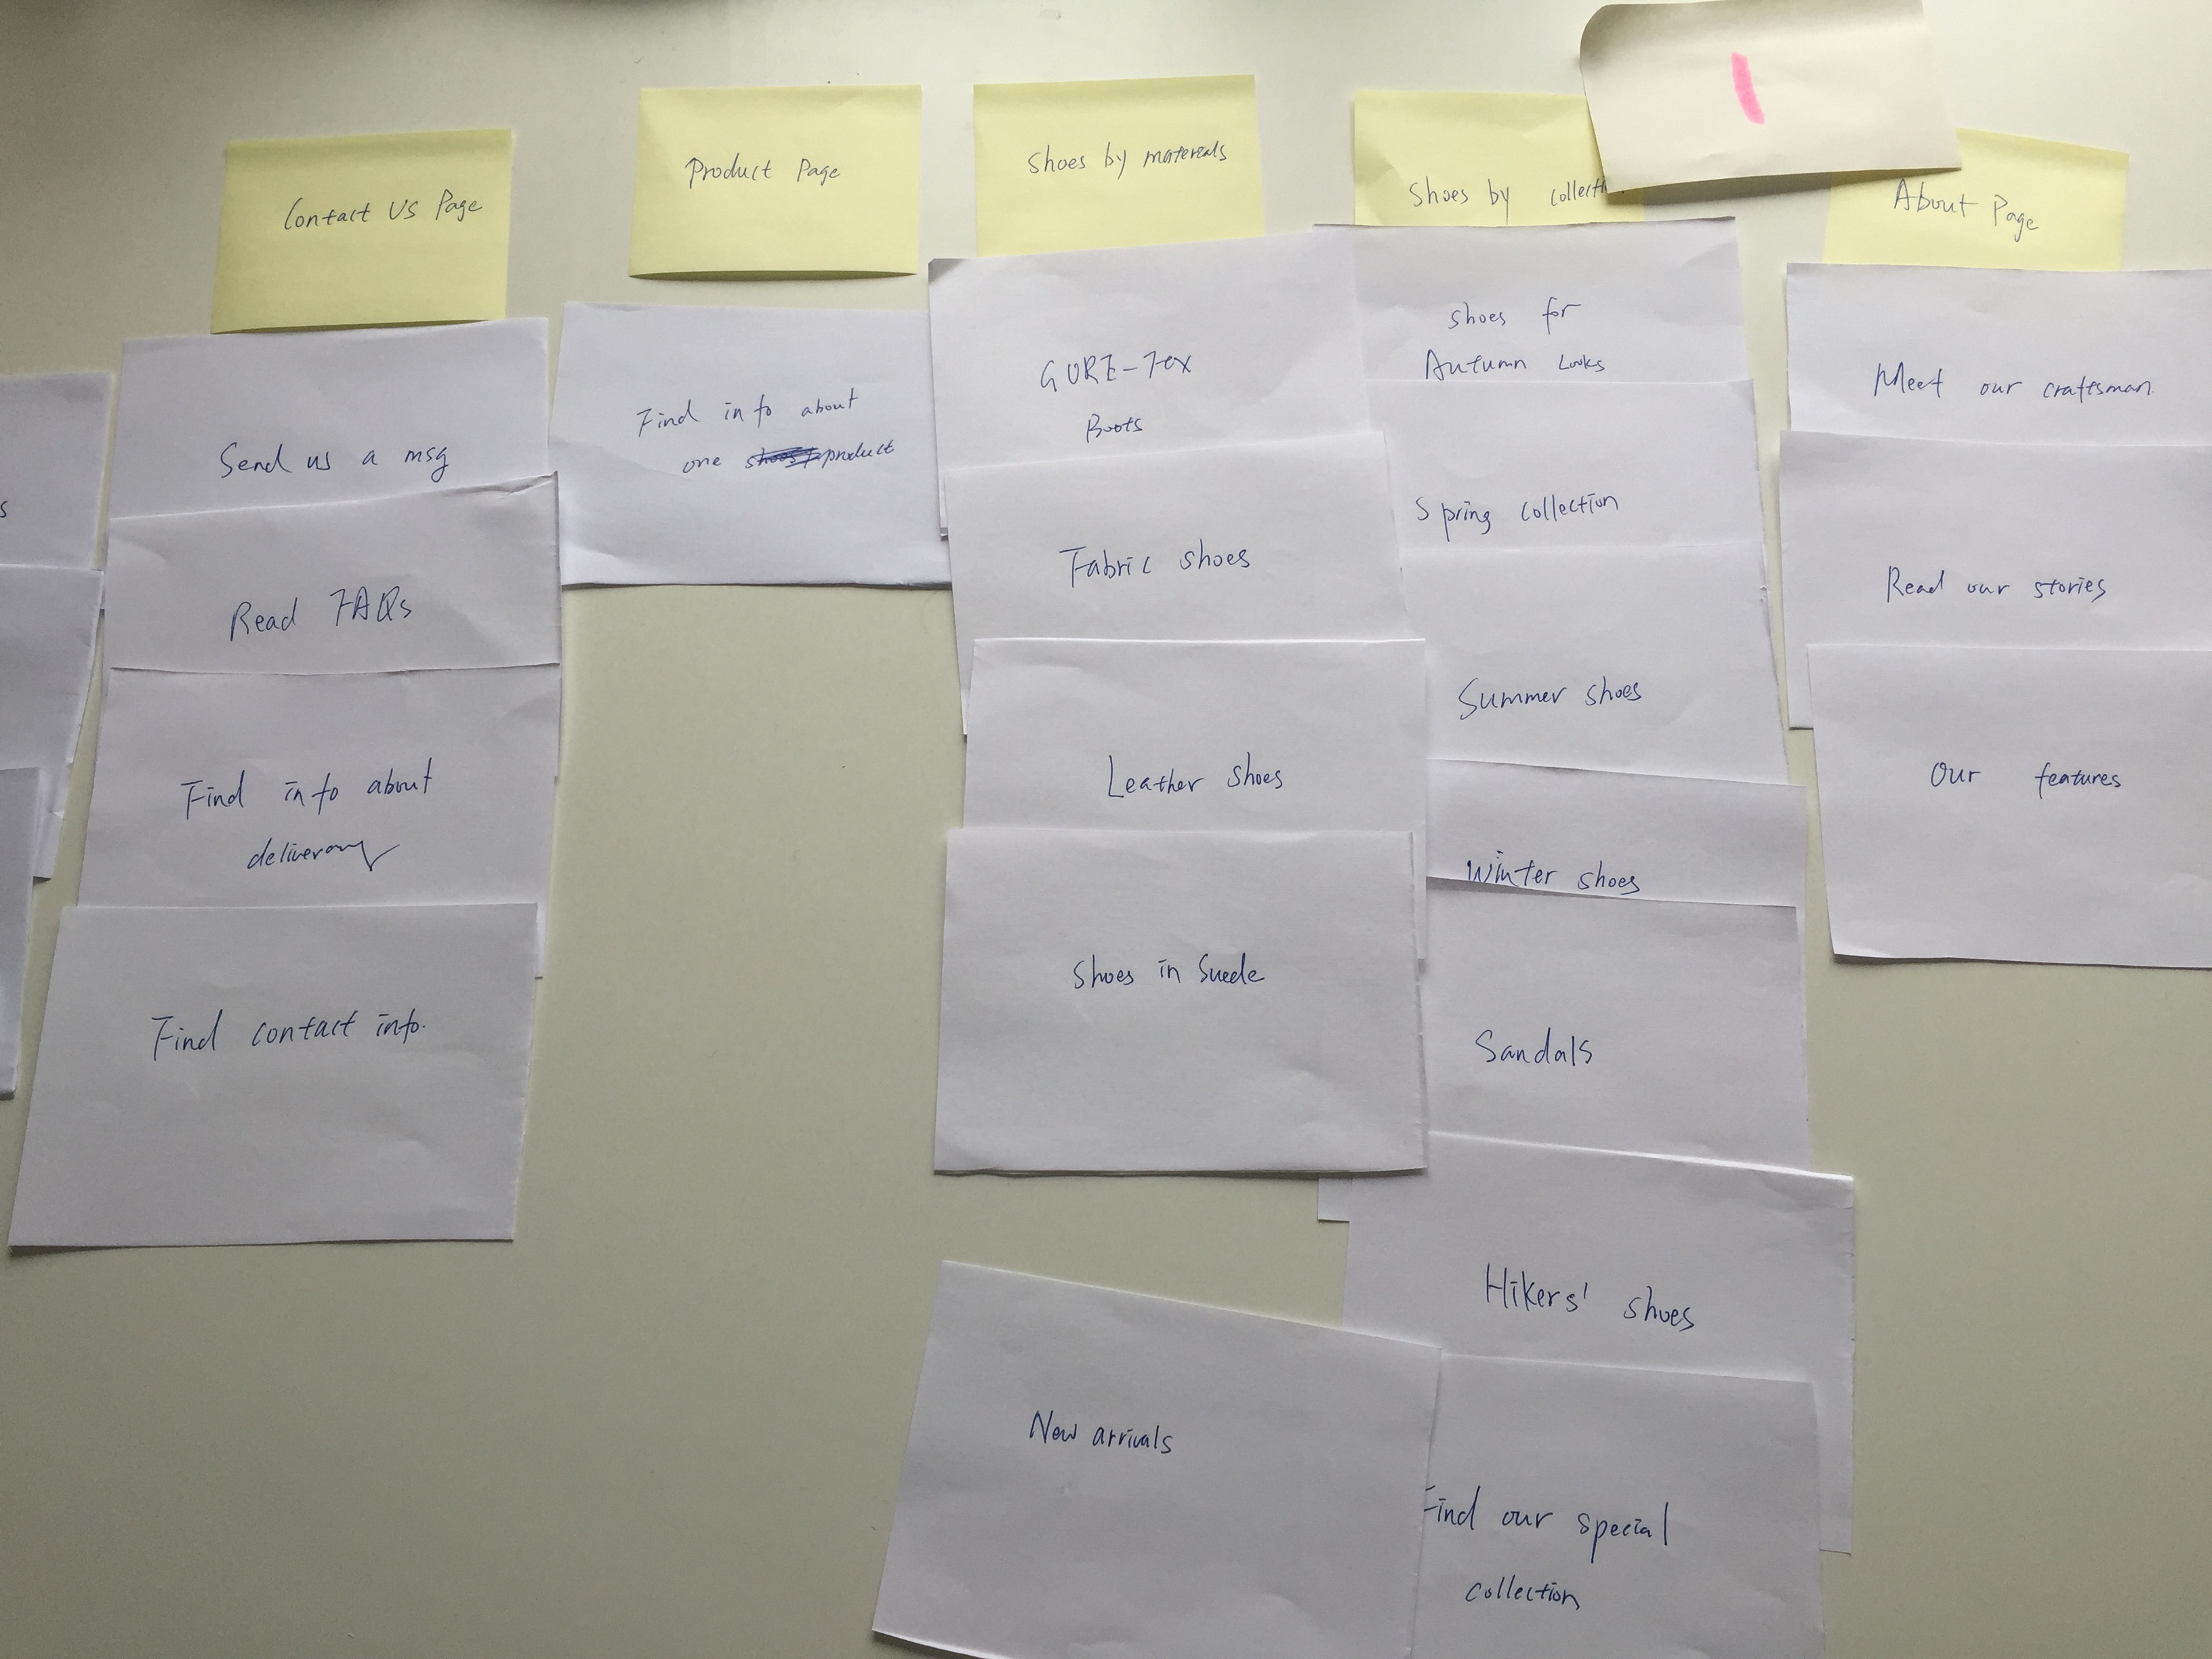 Contact Us Page
Send us a msg
Read FAQs
Find info about
delivery
Find contact info.
Product Page
Find info about
one product
Shoes by materials
GORE-Tex
Boots
Fabric shoes
Leather shoes
Shoes in Suede
New arrivals
Shoes by collecti
Shoes for
Autumn Looks
Spring collection
Summer shoes
Winter shoes
Sandals
Hikers' shoes
Find our special
collection
About Page
Meet our craftsman
Read our stories
Our features